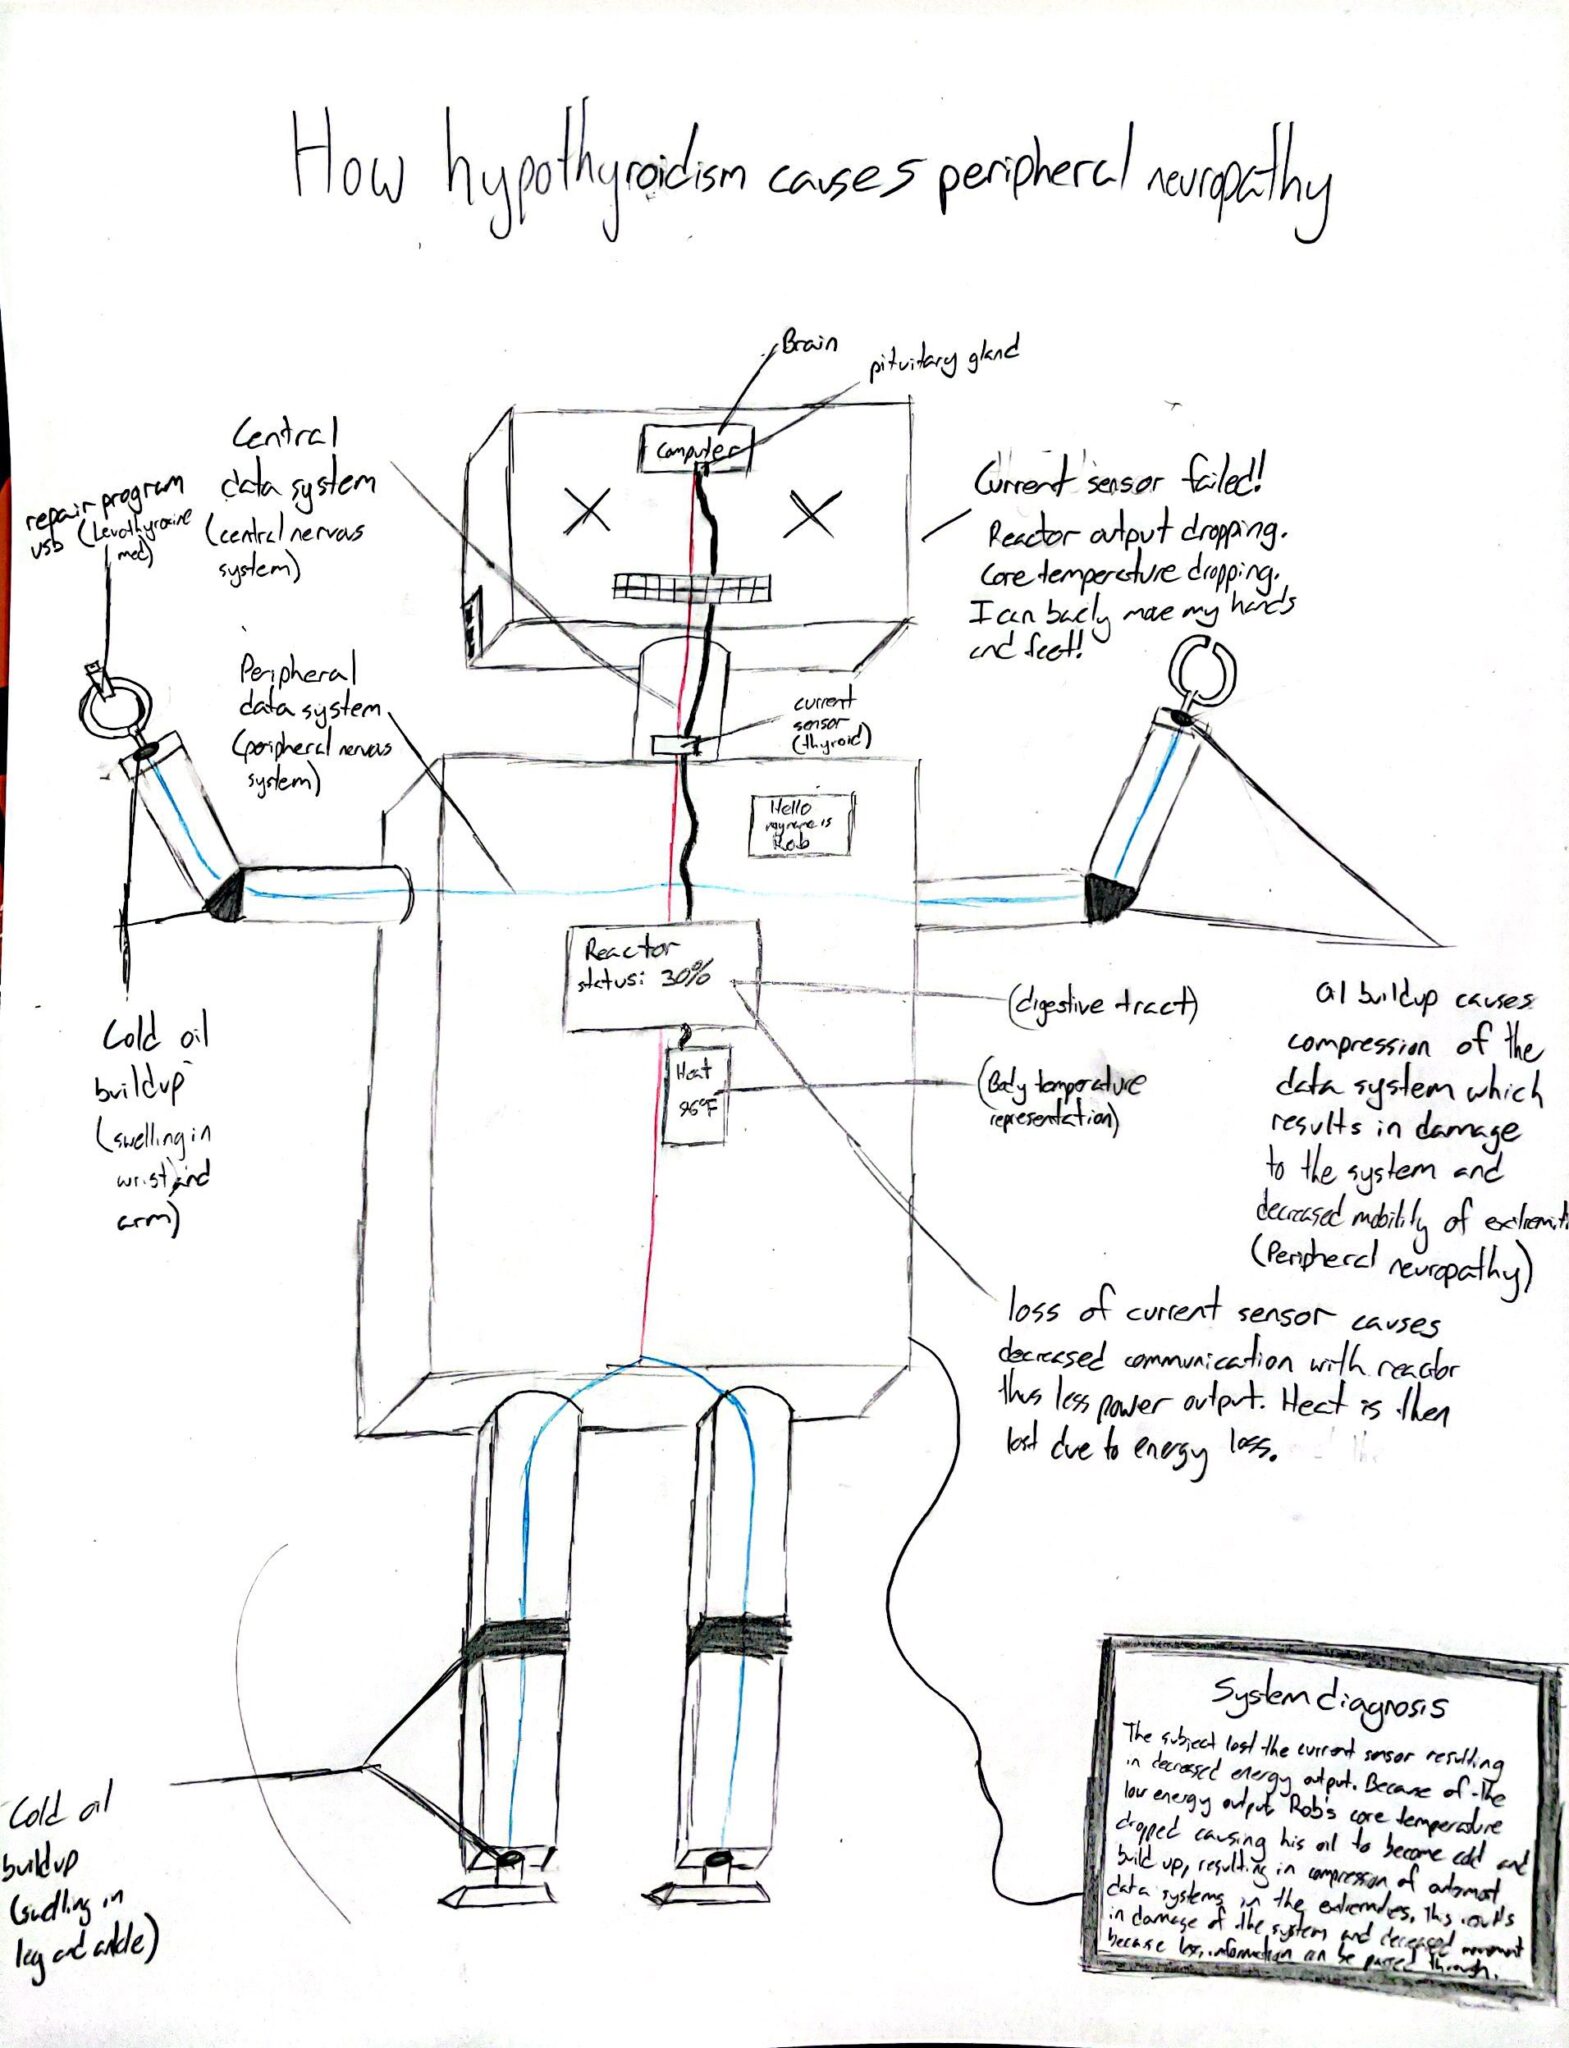 How hypothyroidism causes peripheral neuropathy
Brain
pituitary gland
Computer
Central
data system
(central nervous
system)
repair program
usb (Levothyroxine
med)
Current sensor failed!
Reactor output dropping.
Core temperature dropping.
I can barly move my hands
and feet!
Peripheral
data system
(peripheral nervous
system)
current
sensor
(thyroid)
Hello
my name is
Rob
Reactor
status: 30%
(digestive tract)
Heat
95°F
(Body temperature
representation)
Cold oil
buildup
(swelling in
wrist and
arm)
Oil buildup causes
compression of the
data system which
results in damage
to the system and
decreased mobility of
(Peripheral neuropathy)
loss of current sensor causes
decreased communication with reactor
thus less power output. Heat is then
lost due to energy loss.
Cold oil
buildup
(swelling in
leg and ankle)
System diagnosis
The subject lost the current sensor resulting
in decreased energy output. Because of the
low energy output Rob's core temperature
dropped causing his oil to become cold and
build up, resulting in compression of outermost
data systems in the extremities. This results
in damage of the system and decreased movement
because less information can be passed through.